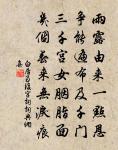 雨露由來一點恩
爭能遍布及千門
三千宮女胭脂面
幾個春來無淚痕
白居易後宮詞